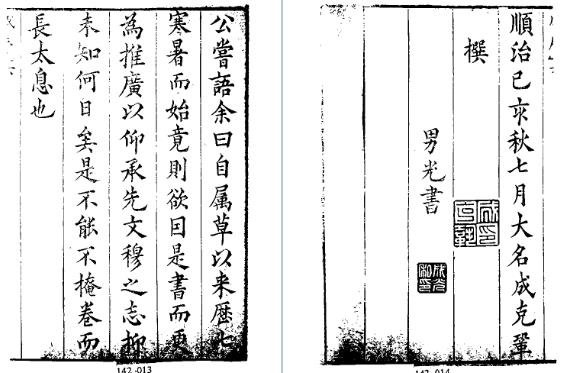 公嘗語余曰自属草以来歷七
寒暑而始竟則欲因是書而更
為推廣以仰承先文穆之志抑
未知何日矣是不能不掩卷而
長太息也
142-013
順治己亥秋七月大名成克鞏
撰
男光書
142-014